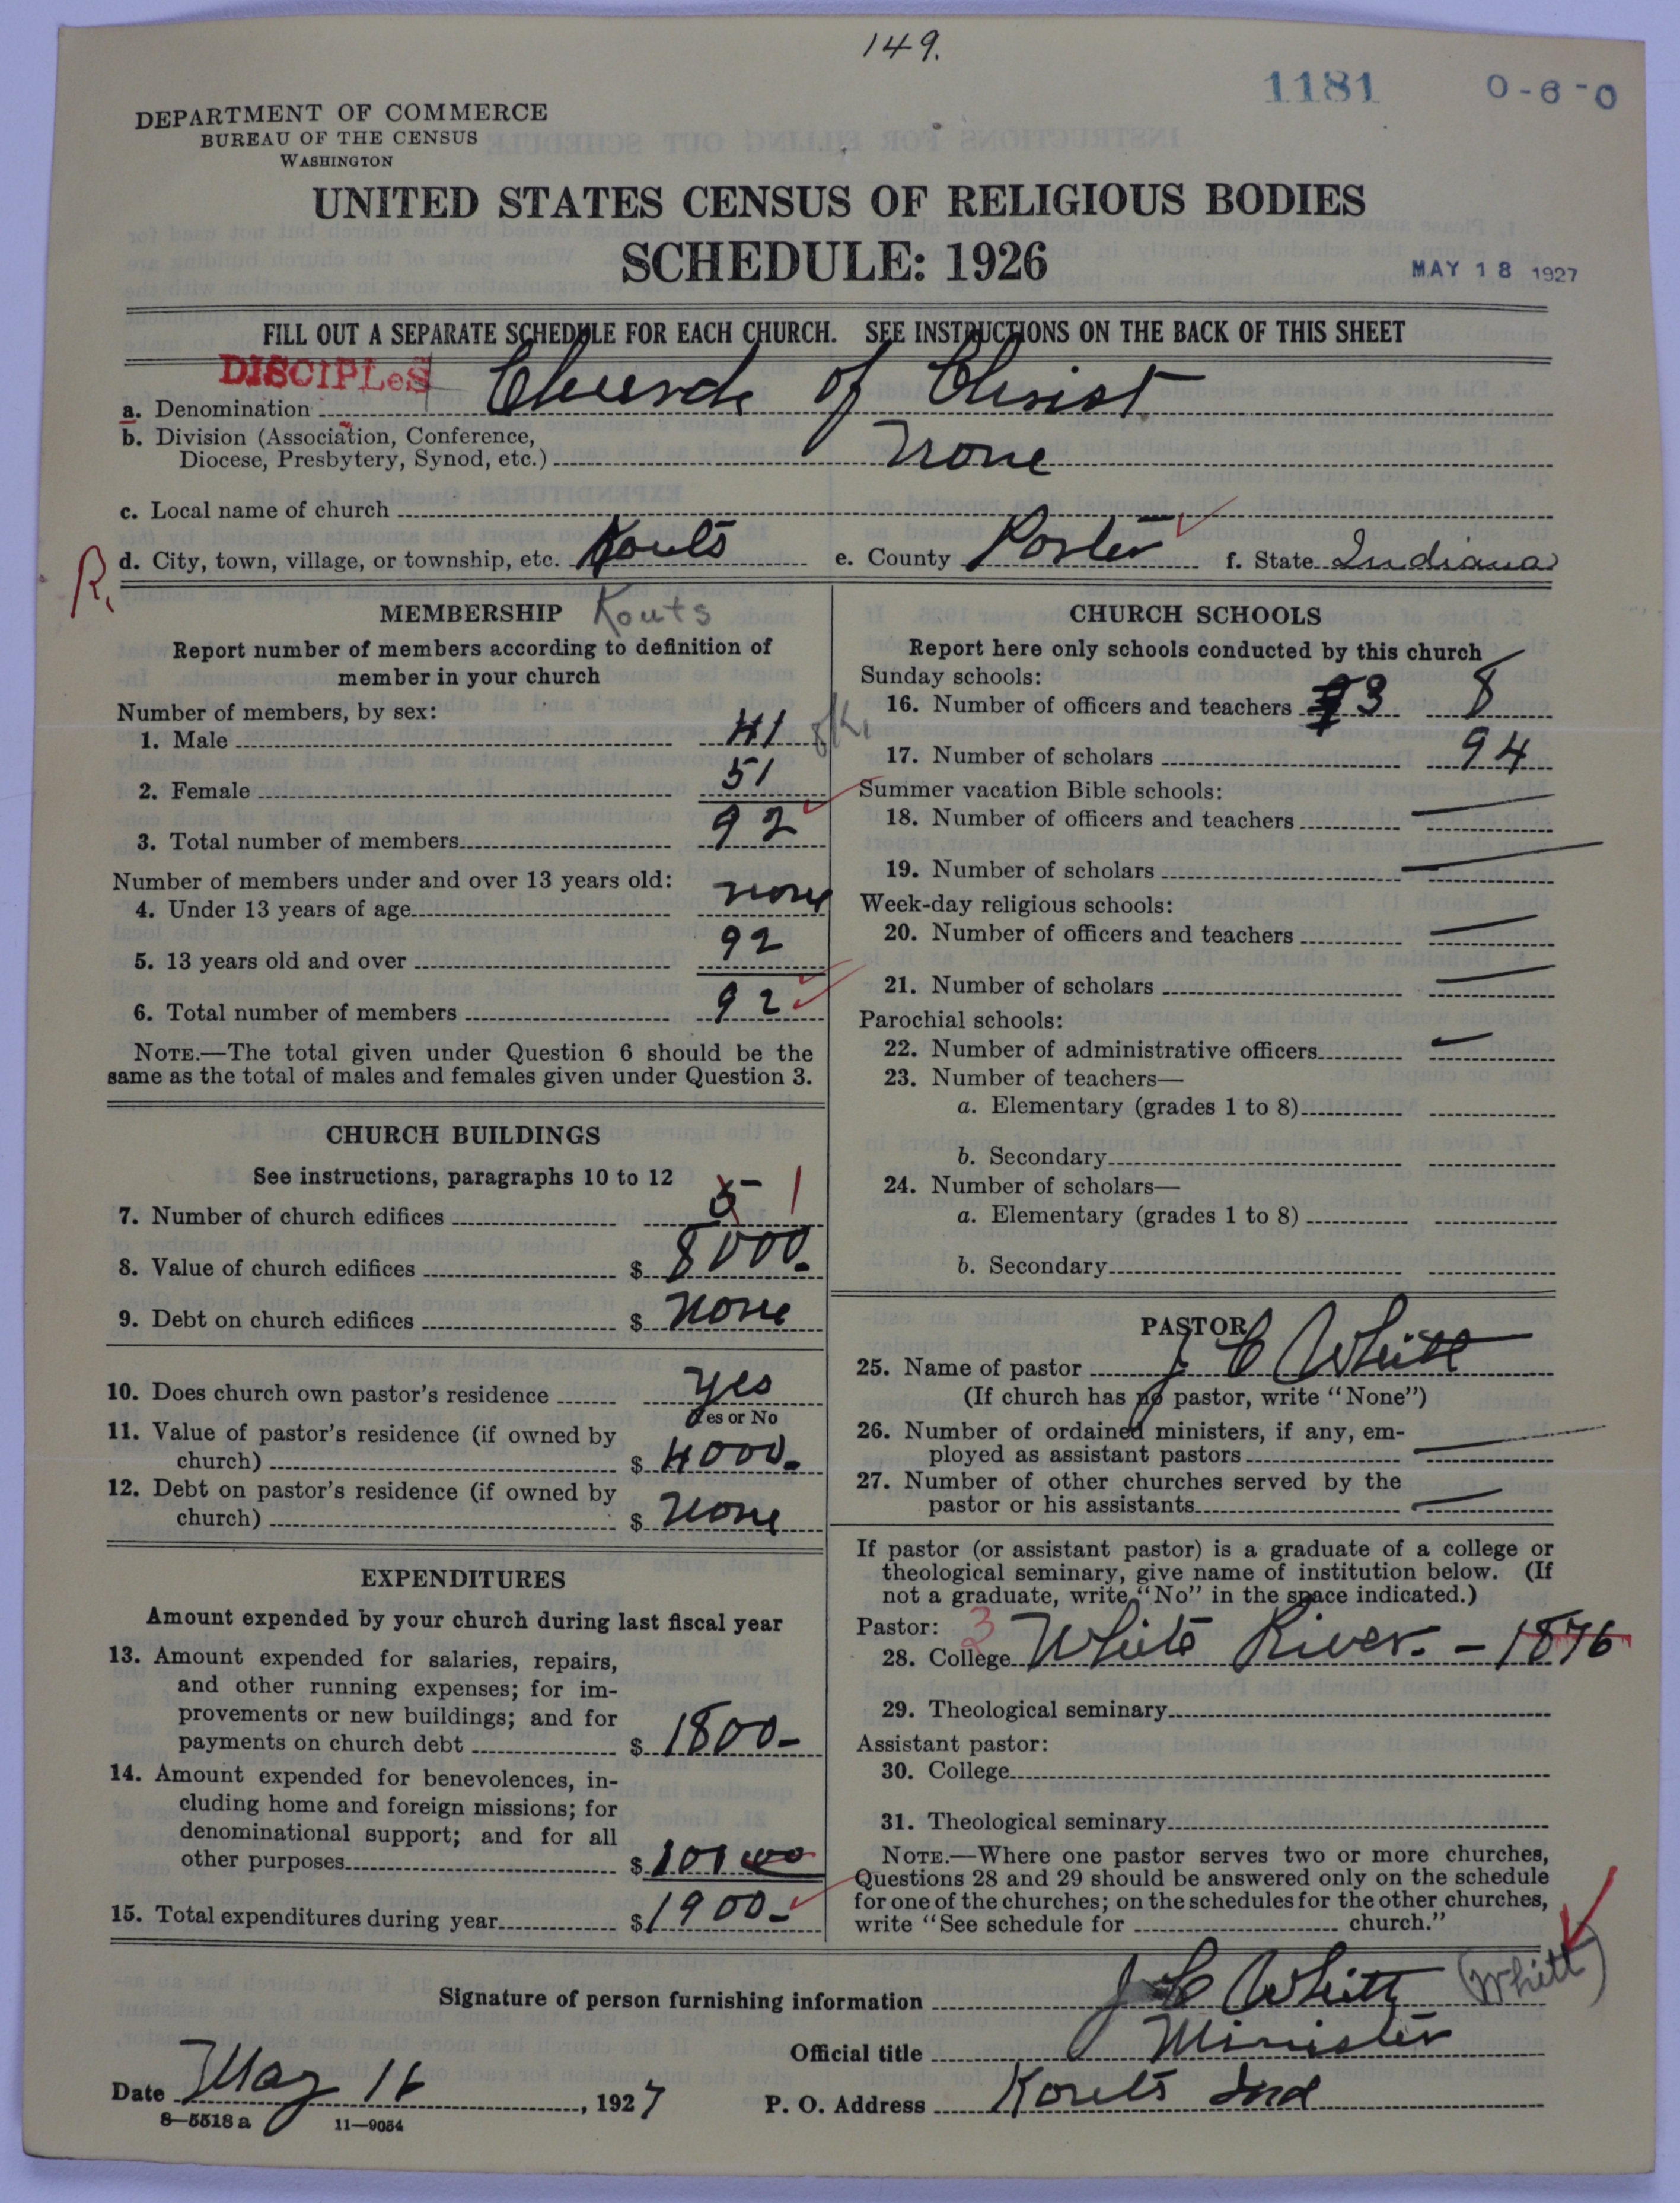 149.
1181 0-6-0
DEPARTMENT OF COMMERCE
BUREAU OF THE CENSUS
WASHINGTON
UNITED STATES CENSUS OF RELIGIOUS BODIES
SCHEDULE: 1926
MAY 18 1927
FILL OUT A SEPARATE SCHEDULE FOR EACH CHURCH. SEE INSTRUCTIONS ON THE BACK OF THIS SHEET
DISCIPLES
a. Denomination Church of Christ
b. Division (Association, Conference,
Diocese, Presbytery, Synod, etc.) None
c. Local name of church
R. d. City, town, village, or township, etc. Kouts e. County Porter f. State Indiana
MEMBERSHIP Kouts
Report number of members according to definition of
member in your church
Number of members, by sex:
1. Male 41 ok
2. Female 51
3. Total number of members 92
Number of members under and over 13 years old:
4. Under 13 years of age none
5. 13 years old and over 92
6. Total number of members 92
NOTE.—The total given under Question 6 should be the
same as the total of males and females given under Question 3.
CHURCH BUILDINGS
See instructions, paragraphs 10 to 12
7. Number of church edifices 5 1
8. Value of church edifices $ 8000.
9. Debt on church edifices $ none
10. Does church own pastor's residence yes
Yes or No
11. Value of pastor's residence (if owned by
church) $ 4000.
12. Debt on pastor's residence (if owned by
church) $ none
EXPENDITURES
Amount expended by your church during last fiscal year
13. Amount expended for salaries, repairs,
and other running expenses; for im-
provements or new buildings; and for
payments on church debt $ 1800-
14. Amount expended for benevolences, in-
cluding home and foreign missions; for
denominational support; and for all
other purposes $ 100 00
15. Total expenditures during year $ 1900-
CHURCH SCHOOLS
Report here only schools conducted by this church
Sunday schools:
16. Number of officers and teachers 3 8
17. Number of scholars 94
Summer vacation Bible schools:
18. Number of officers and teachers
19. Number of scholars
Week-day religious schools:
20. Number of officers and teachers
21. Number of scholars
Parochial schools:
22. Number of administrative officers
23. Number of teachers—
a. Elementary (grades 1 to 8)
b. Secondary
24. Number of scholars—
a. Elementary (grades 1 to 8)
b. Secondary
PASTOR
25. Name of pastor J C Whitt
(If church has no pastor, write "None")
26. Number of ordained ministers, if any, em-
ployed as assistant pastors
27. Number of other churches served by the
pastor or his assistants
If pastor (or assistant pastor) is a graduate of a college or
theological seminary, give name of institution below. (If
not a graduate, write "No" in the space indicated.)
Pastor: 3
28. College White River. - 1876
29. Theological seminary
Assistant pastor:
30. College
31. Theological seminary
NOTE.—Where one pastor serves two or more churches,
Questions 28 and 29 should be answered only on the schedule
for one of the churches; on the schedules for the other churches,
write "See schedule for church."
Signature of person furnishing information J C Whitt (Whitt)
Official title Minister
Date May 16, 1927 P. O. Address Kouts Ind
8—5518 a 11—9054